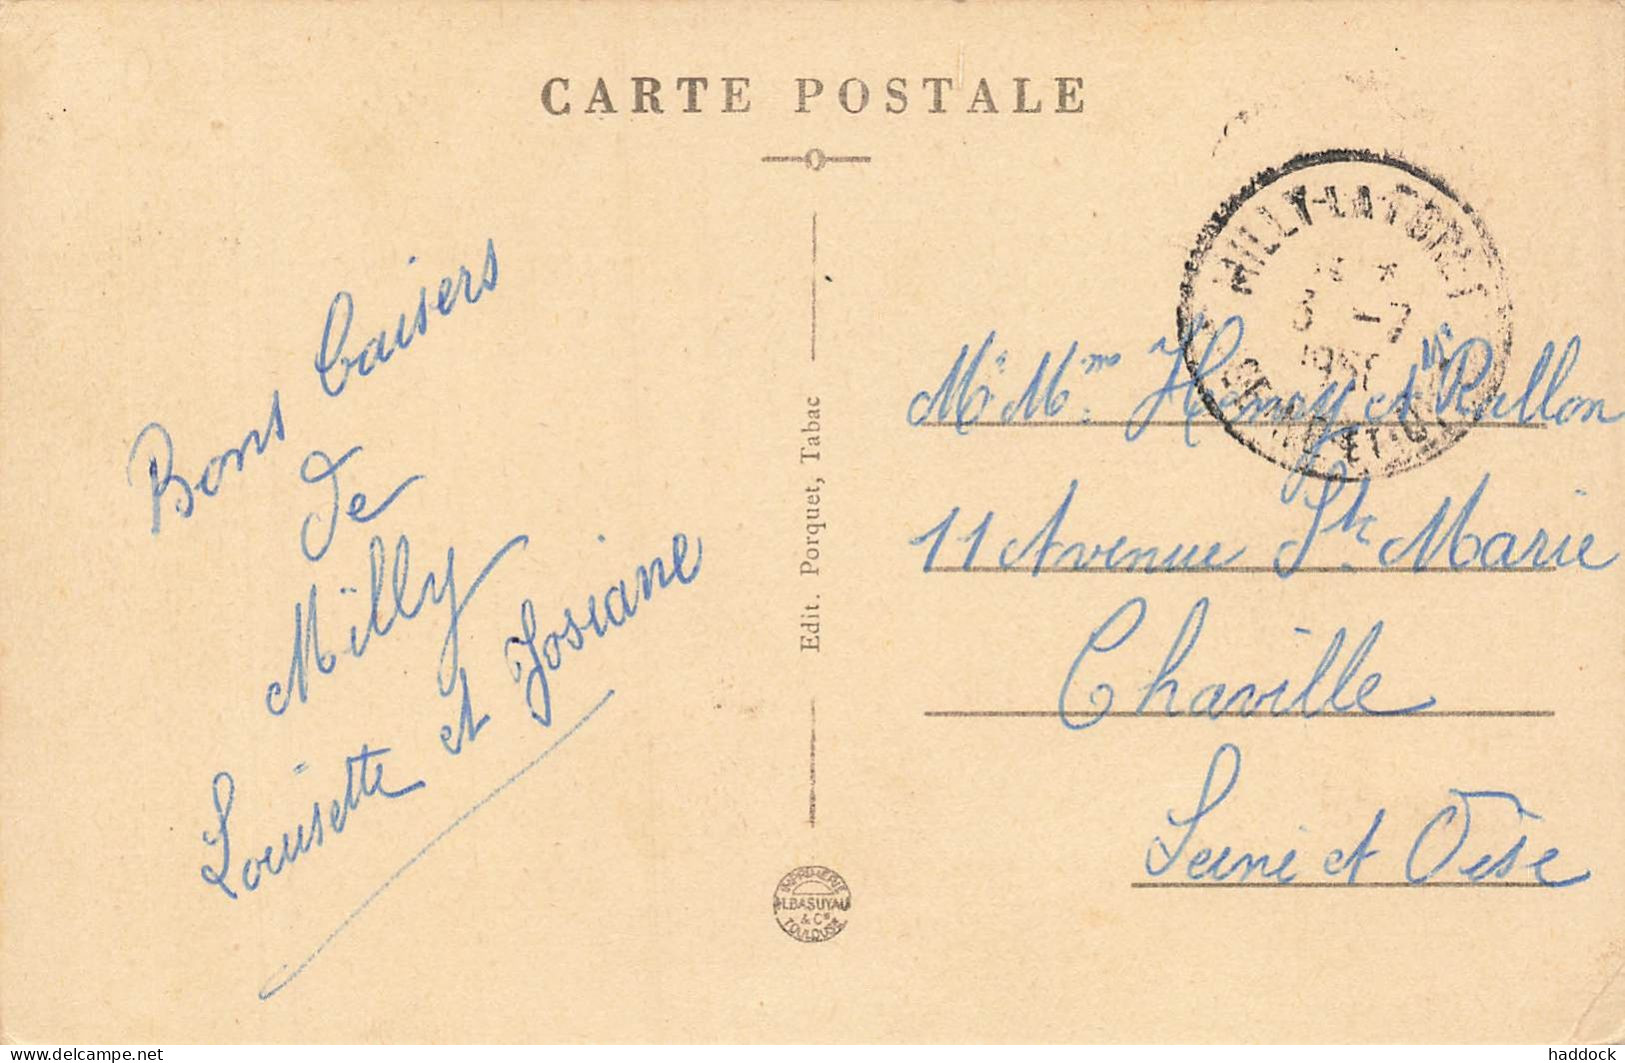 CARTE POSTALE
Bons baisers
de
Milly
Louisette et Josiane
Edit. Porquet, Tabac
IMPRIMERIE
H. BASUYAU
& Cie
TOULOUSE
MILLY-LA-FORET
1-7
SEINE-ET-OISE
Mr Mme Henry et Rullon
11 Avenue Ste Marie
Chaville
Seine et Oise
delcampe.net
haddock